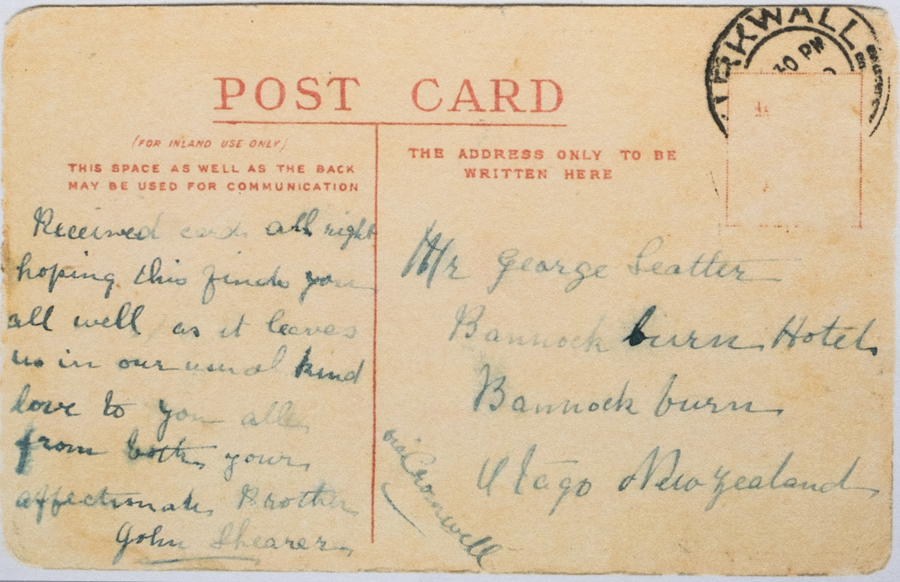 KIRKWALL
30 PM
POST CARD
(FOR INLAND USE ONLY)
THIS SPACE AS WELL AS THE BACK
MAY BE USED FOR COMMUNICATION
THE ADDRESS ONLY TO BE
WRITTEN HERE
Received cards all right
hoping this finds you
all well as it leaves
us in our usual kind
love to you all
from both yours
affectionate Brother
John Shearer
Mr George Leatter
Bannockburn Hotel
Bannockburn
Otago New Zealand
via Cromwell